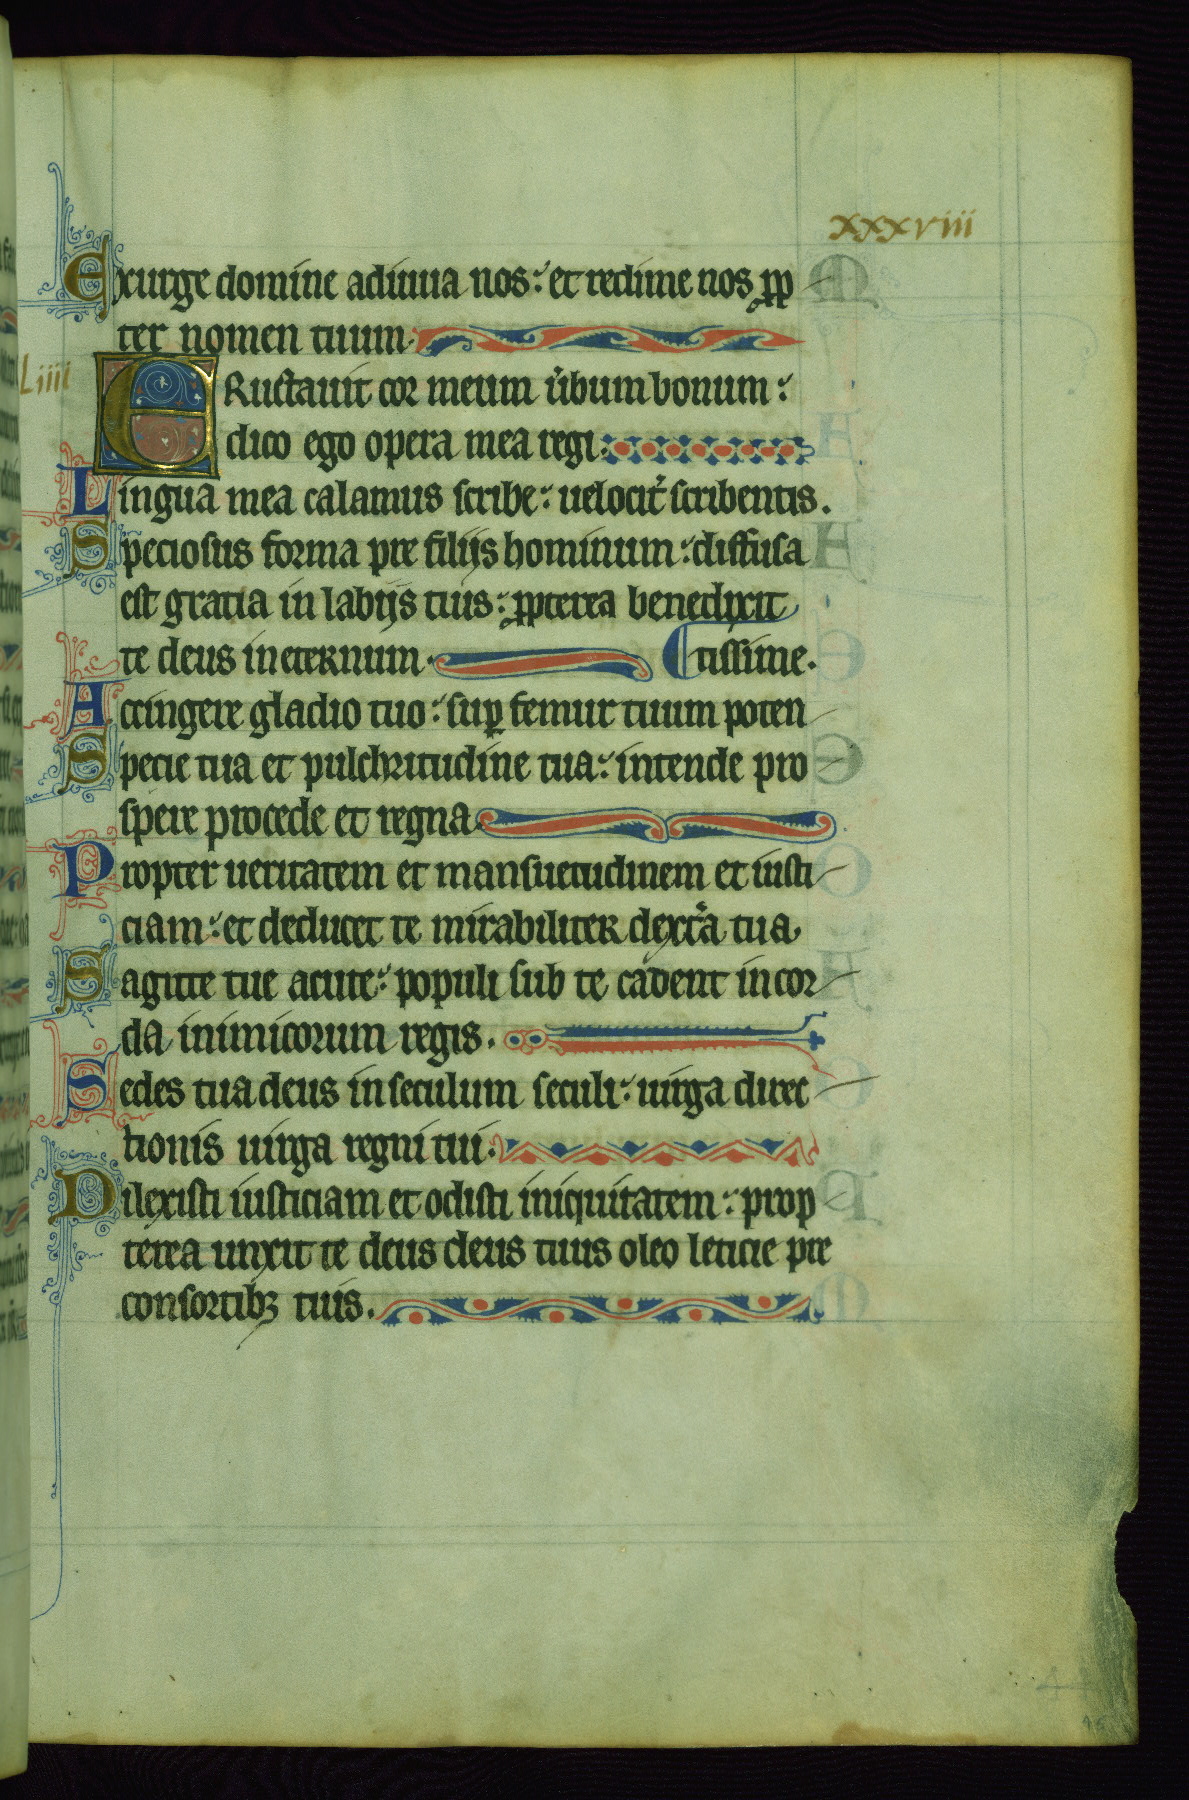 xxxviii
Exurge domine adiuua nos: et redime nos pp
ter nomen tuum.
Liiii
ERuctauit cor meum ũbum bonum:
dico ego opera mea regi.
Lingua mea calamus scribe: uelocit᷑ scribentis.
Speciosus forma pre filijs hominum: diffusa
est gratia in labijs tuis: ꝓpterea benedixit
te deus in eternum. tissime.
Accingere gladio tuo: suꝑ femur tuum poten
Specie tua et pulchritudine tua: intende pro
spere procede et regna.
Propter ueritatem et mansuetudinem et iusti
ciam: et deducet te mirabiliter dext᷑a tua
Sagitte tue acute: populi sub te cadent in cor
da inimicorum regis.
Sedes tua deus in seculum seculi: uirga direc
tionis uirga regni tui.
Dilexisti iusticiam et odisti iniquitatem: prop
terea unxit te deus deus tuus oleo leticie pre
consortibꝫ tuis.
44
45